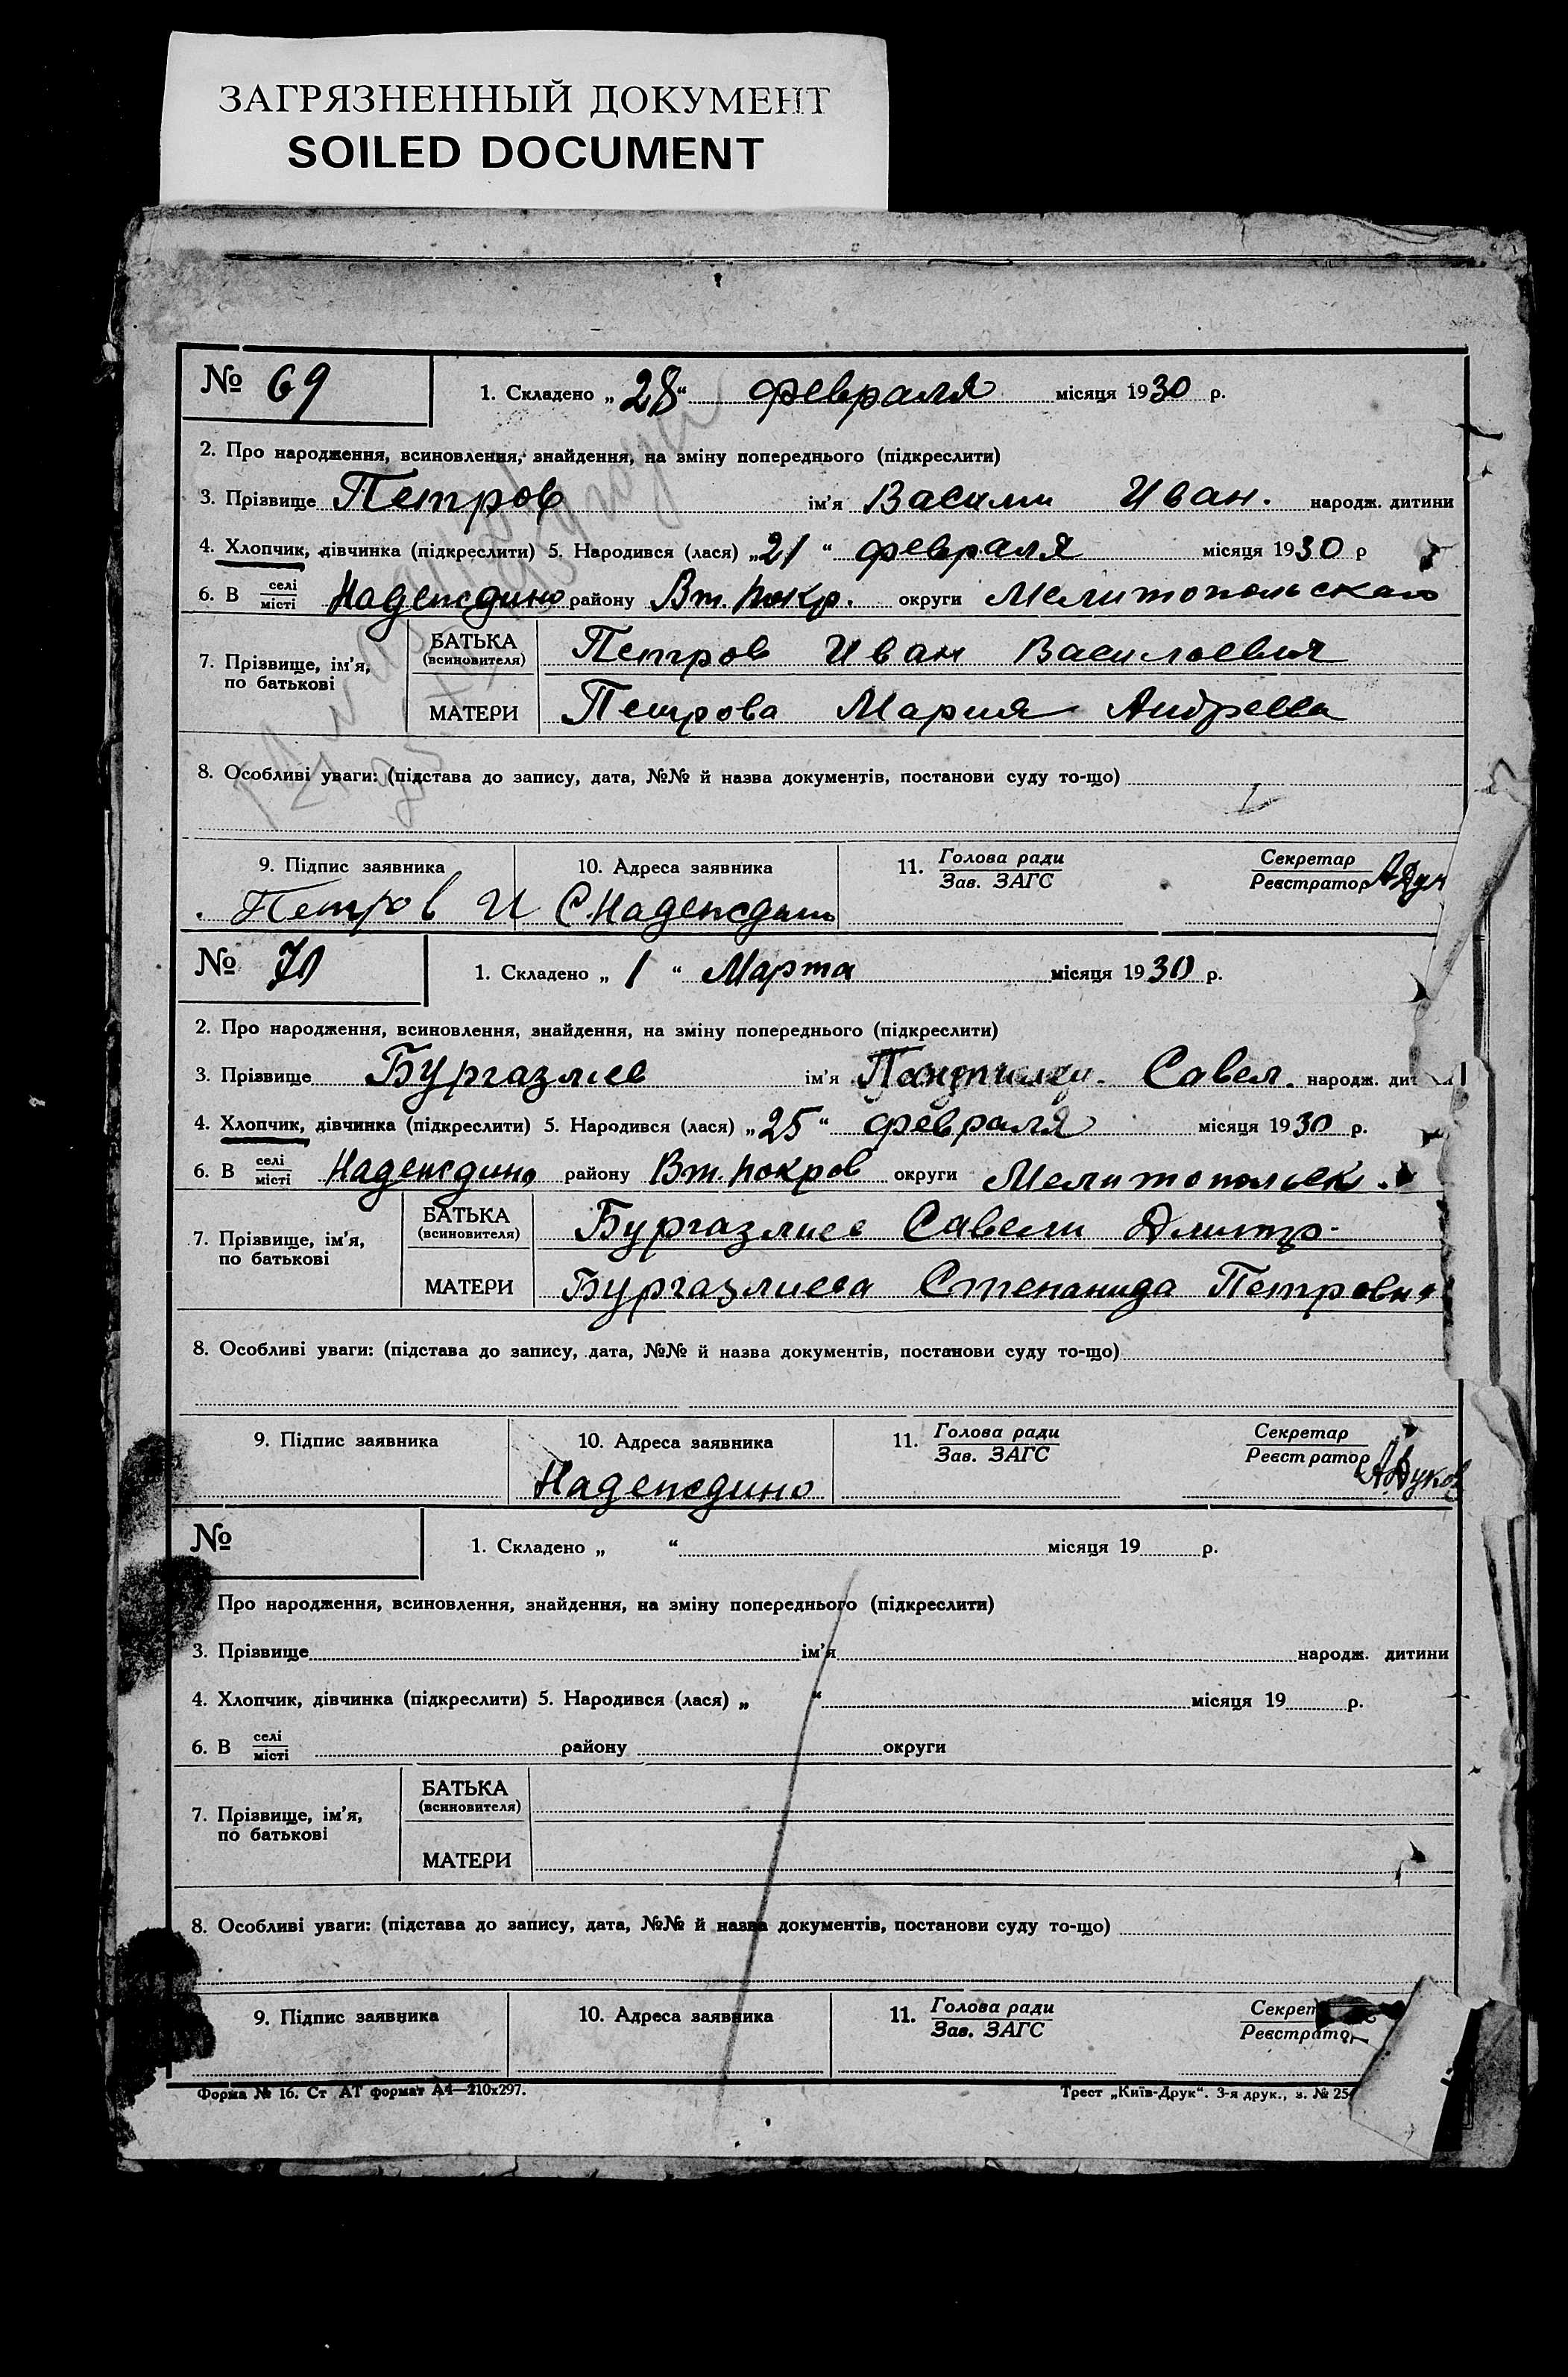 ЗАГРЯЗНЕННЫЙ ДОКУМЕНТ
SOILED DOCUMENT
№ 69
1. Складено „28“ февраля місяця 1930 р.
2. Про народження, всиновлення, знайдення, на зміну попереднього (підкреслити)
3. Прізвище Петров ім'я Васили Иван. народж. дитини
4. Хлопчик, дівчинка (підкреслити) 5. Народився (лася) „21“ февраля місяця 1930 р
6. В селі/місті Надеждино району Вт. Покр. округи Мелитопольского
7. Прізвище, ім'я, по батькові
БАТЬКА (всиновителя) Петров Иван Васильевич
МАТЕРИ Петрова Мария Андреева
8. Особливі уваги: (підстава до запису, дата, №№ й назва документів, постанови суду то-що)
9. Підпис заявника 10. Адреса заявника 11. Голова ради/Зав. ЗАГС Секретар/Реєстратор
Петров И С. Надеждин
№ 70
1. Складено „1“ Марта місяця 1930 р.
2. Про народження, всиновлення, знайдення, на зміну попереднього (підкреслити)
3. Прізвище Бургазлиев ім'я Савел. народж.
4. Хлопчик, дівчинка (підкреслити) 5. Народився (лася) „25“ февраля місяця 1930 р.
6. В селі/місті Надеждино району Вт. Покров округи Мелитопольск.
7. Прізвище, ім'я, по батькові
БАТЬКА (всиновителя) Бургазлиев Савели Дмитр.
МАТЕРИ Бургазлиева Степанида Петровн
8. Особливі уваги: (підстава до запису, дата, №№ й назва документів, постанови суду то-що)
9. Підпис заявника 10. Адреса заявника 11. Голова ради/Зав. ЗАГС Секретар/Реєстратор
Надеждино
№
1. Складено „ “ місяця 19 р.
Про народження, всиновлення, знайдення, на зміну попереднього (підкреслити)
3. Прізвище ім'я народж. дитини
4. Хлопчик, дівчинка (підкреслити) 5. Народився (лася) „ “ місяця 19 р.
6. В селі/місті району округи
7. Прізвище, ім'я, по батькові
БАТЬКА (всиновителя)
МАТЕРИ
8. Особливі уваги: (підстава до запису, дата, №№ й назва документів, постанови суду то-що)
9. Підпис заявника 10. Адреса заявника 11. Голова ради/Зав. ЗАГС Секрет/Реєстратор
Форма № 16. Ст АТ формат А4—210х297.
Трест „Київ-Друк“. 3-я друк., з. № 254